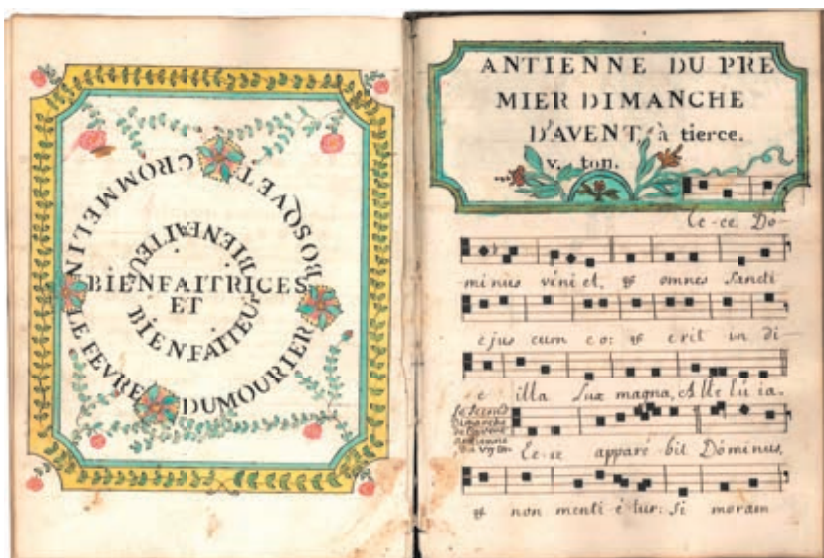 CROMMELIN
BOSQVET
LE FEVRE
DUMOURIER
BIENFAITEUR
BIENFAITRICES
ET
BIENFAITEUR
ANTIENNE DU PRE
MIER DIMANCHE
D'AVENT, à tierce.
v. ton.
Ec-ce Do-
minus véni et, & omnes Sancti
ejus cum e o: & erit in di-
e illa Lux magna, Alle lú ia.
le Second
Dimanche
de l'avent
antienne
du vij ton
Ec-ce apparé bit Dóminus,
& non menti é tur: Si moram